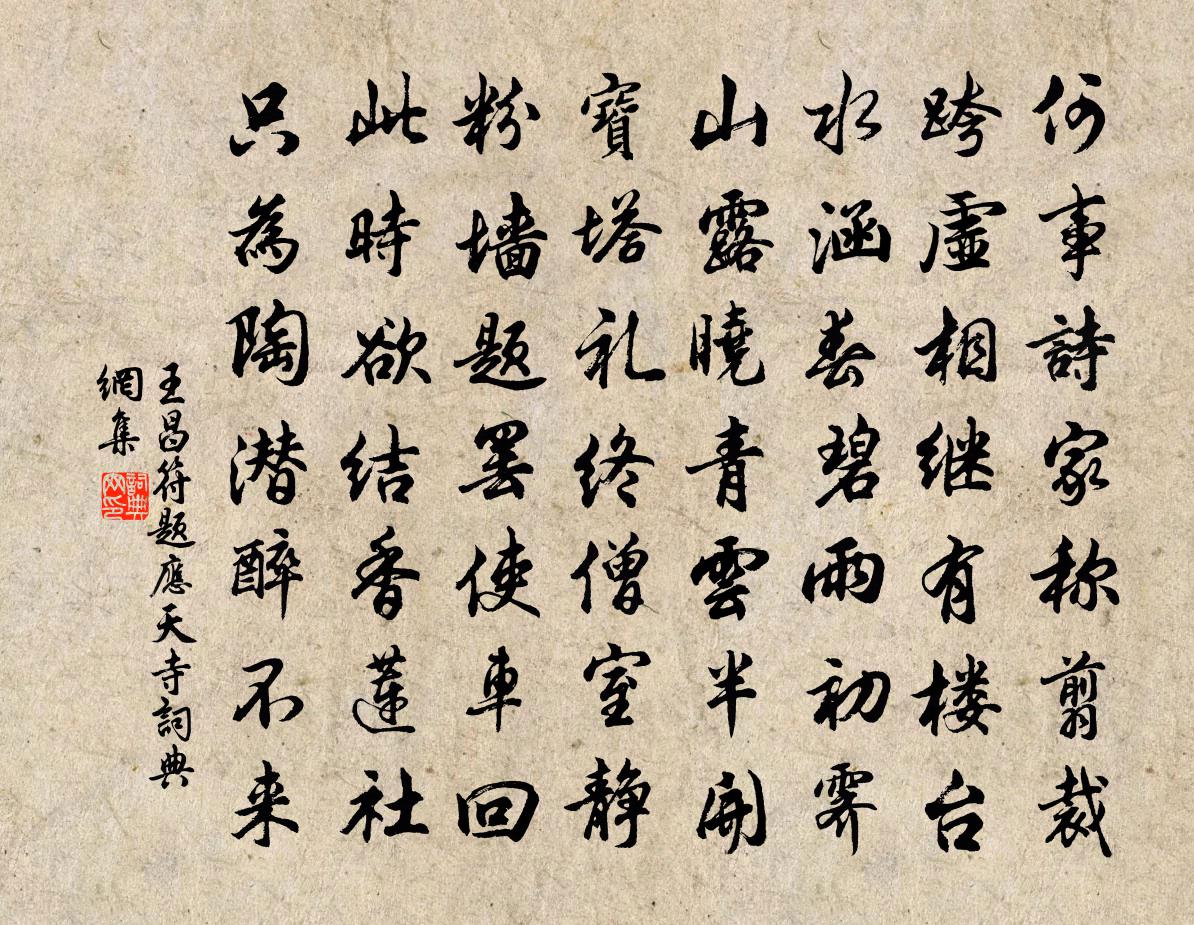 何事詩家称剪裁
跨虛相继有楼台
水涵春碧雨初霽
山露曉青雲半開
寶塔礼终僧室静
粉墙题罢使車回
此時欲结香蓮社
只為陶潜醉不来
王昌符题應天寺詞典
網集
詞典
网印